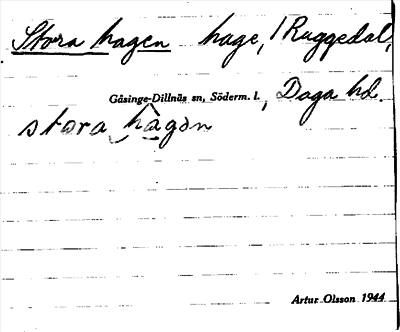 Stora hagen hage, Ruggedal,
Gåsinge-Dillnäs sn, Söderm. l., Daga hd.
stora hagən
Artur Olsson 1944